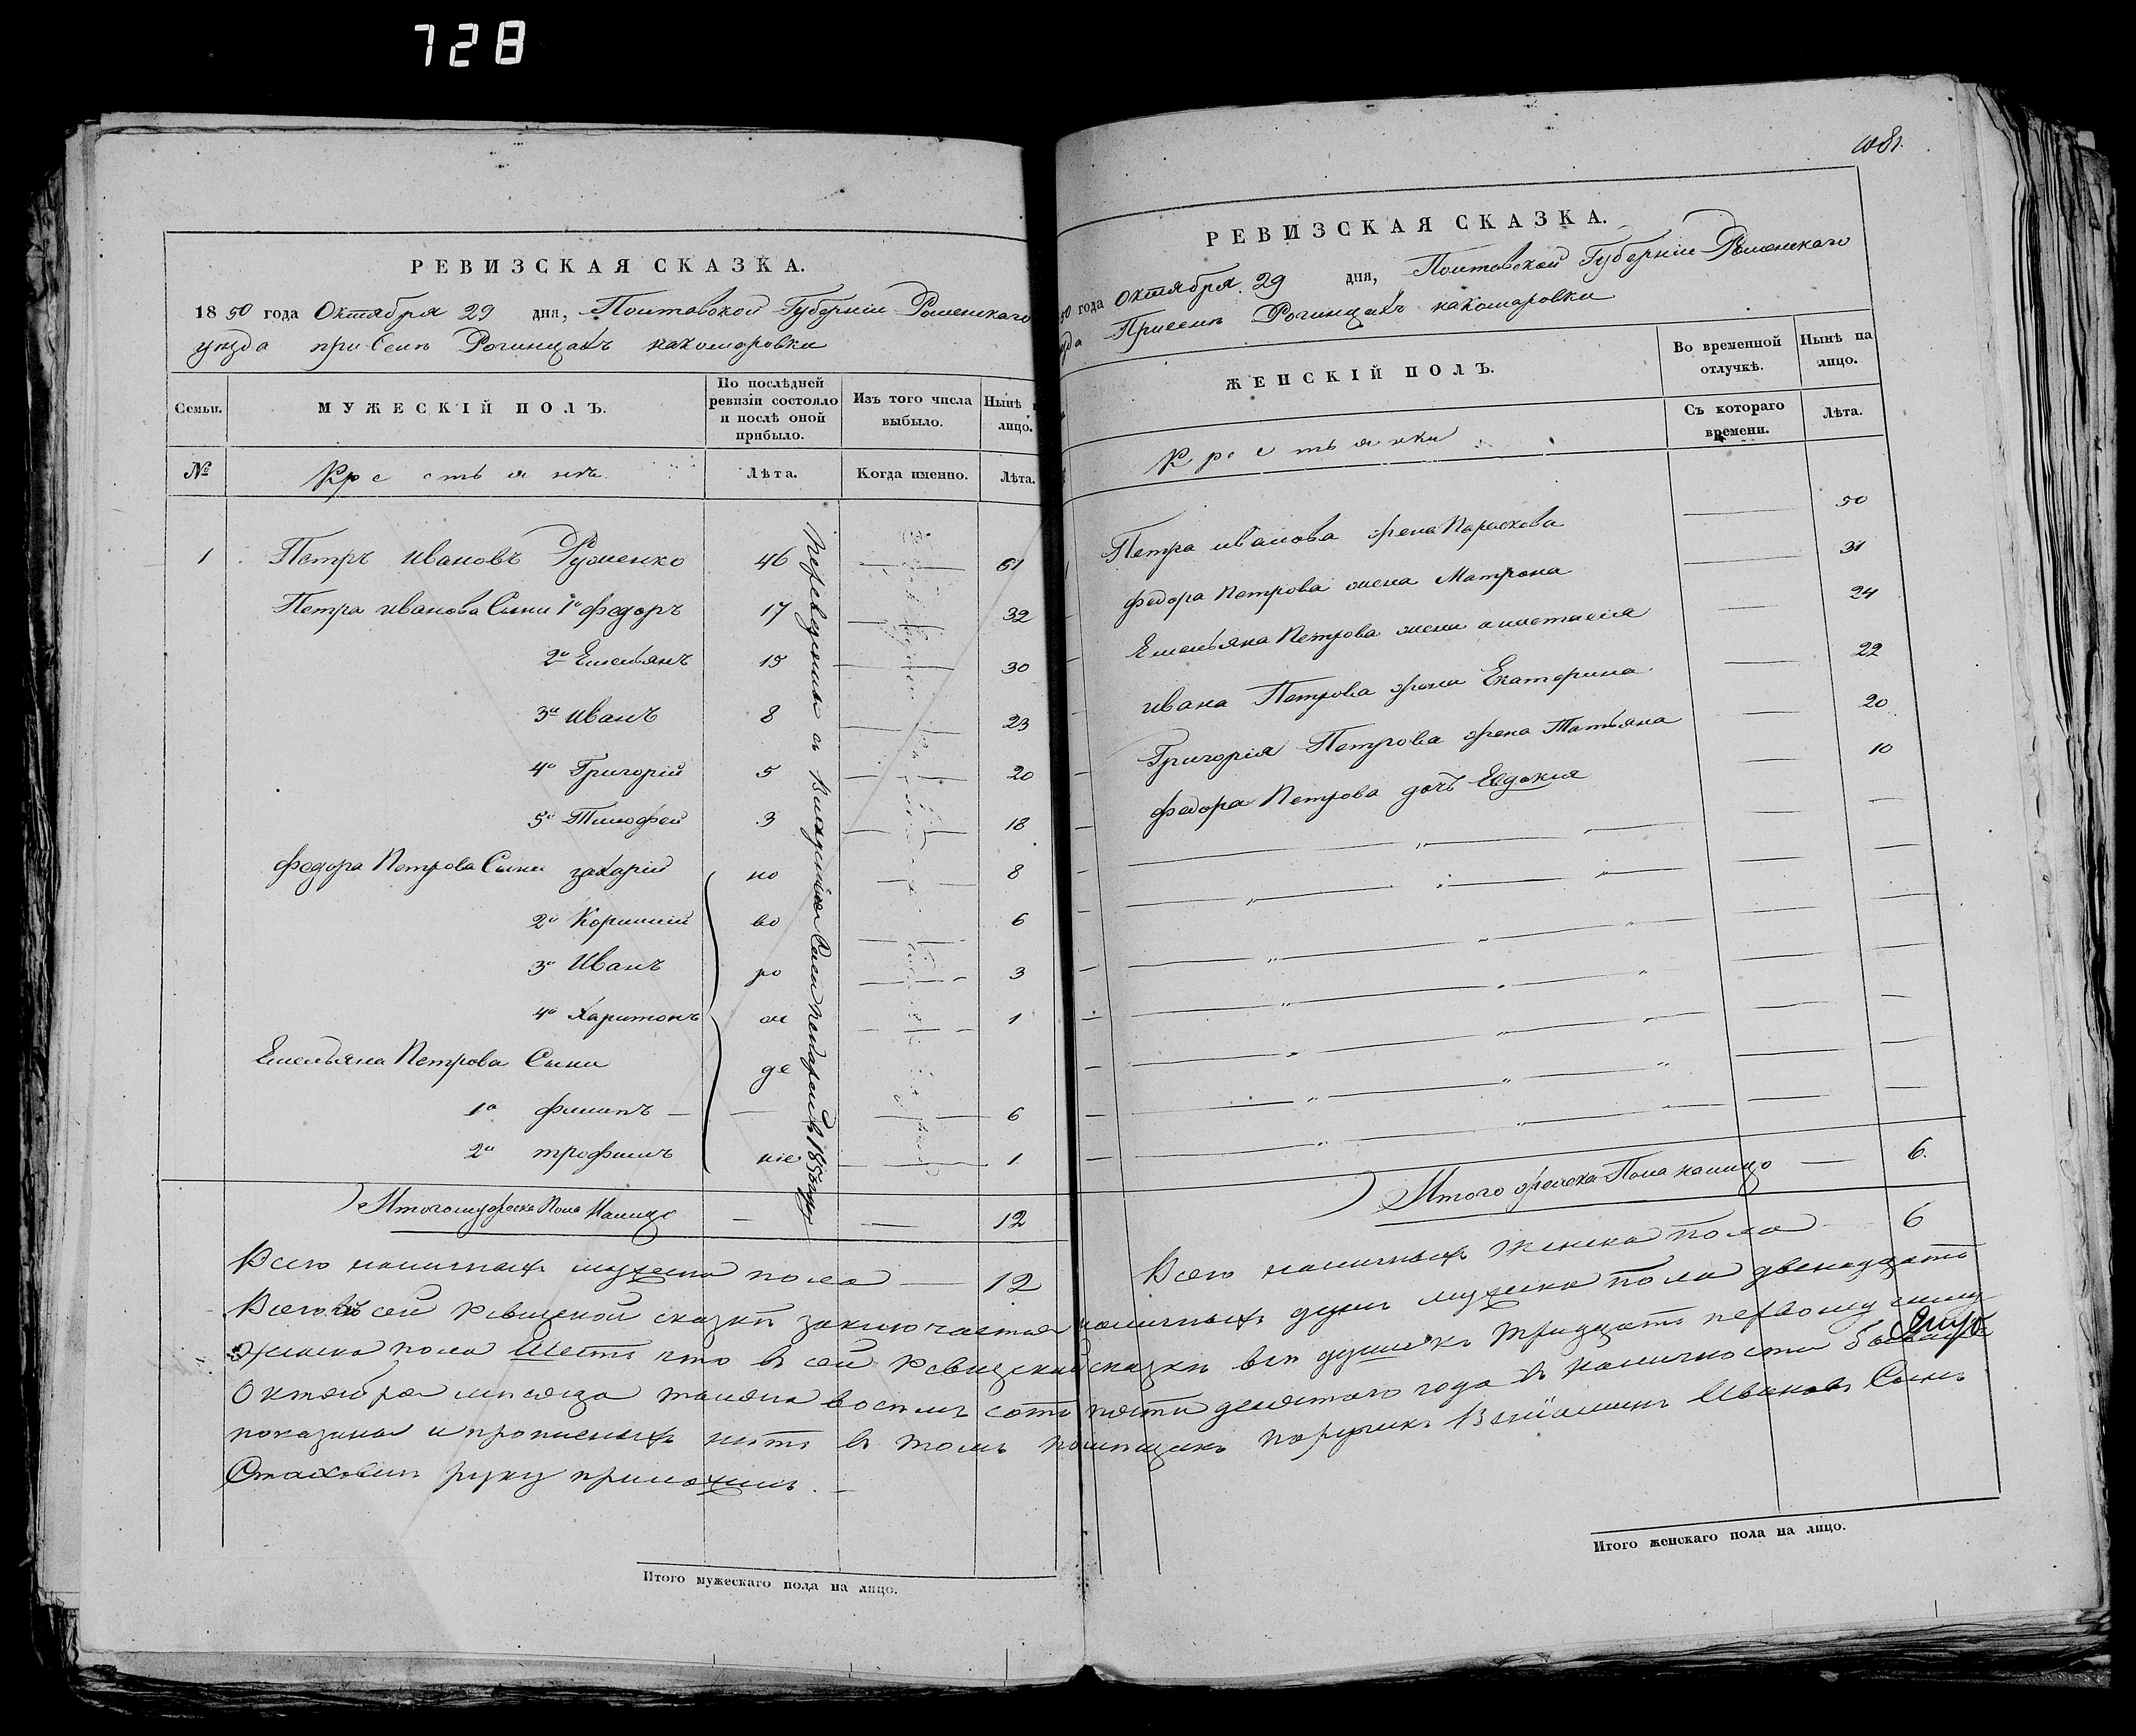 728
РЕВИЗСКАЯ СКАЗКА.
1850 года Октября 29 дня, Полтавской Губерніи Роменскаго
уезда при Селѣ Рогинцахъ на комаровки
Семьи.
МУЖЕСКІЙ ПОЛЪ.
По послѣдней ревизіи состояло и послѣ оной прибыло.
Изъ того числа выбыло.
Нынѣ лицо.
№
Крестьянъ
Лѣта.
Когда именно.
Лѣта.
1 Петръ Ивановъ Руменко 46 61
Петра Иванова Сыны 1й Федоръ 17 32
2й Емельянъ 15 30
3й Иванъ 8 23
4й Григорій 5 20
5й Тимофей 3 18
Федора Петрова Сыны захарій но 8
2й Корнилій во 6
3й Иванъ ро 3
4й Харитонъ ж 1
Емельяна Петрова Сыны де
1й филипъ 6
2й трофимъ ніе 1
Итого мужеска Пола Налицо 12
Всего наличныхъ мужеска пола 12
Переведены
108
РЕВИЗСКАЯ СКАЗКА.
50 года Октября 29 дня, Полтавской Губерніи Роменскаго
да При селѣ Рогинцахъ на комаровки
ЖЕНСКІЙ ПОЛЪ.
Во временной отлучкѣ.
Нынѣ на лицо.
Крестьянки
Съ котораго времени.
Лѣта.
Петра Иванова жена Параскева 50
Федора Петрова жена Матрона 31
Емельяна Петрова жена анастасія 24
Ивана Петрова жена Екатерина 22
Григорія Петрова жена Татьяна 20
Федора Петрова дочь Евдокія 10
Итого женска Пола налицо 6
Всего наличныхъ женска пола 6
Всего въ сей ревизской сказкѣ заключается наличныхъ душъ мужеска пола двенадцать
женска пола Шесть что в сей ревизской сказки все души къ тридцать первому числу
Октября месяца тысяча восемь сотъ пятидесятого года в наличности бывшые
показаны и прописныхъ нетъ в томъ помещикъ порутчикъ Веніаминъ Ивановъ Сынъ
Стаховичъ руку приложилъ.
Итого мужескаго пола на лицо.
Итого женскаго пола на лицо.